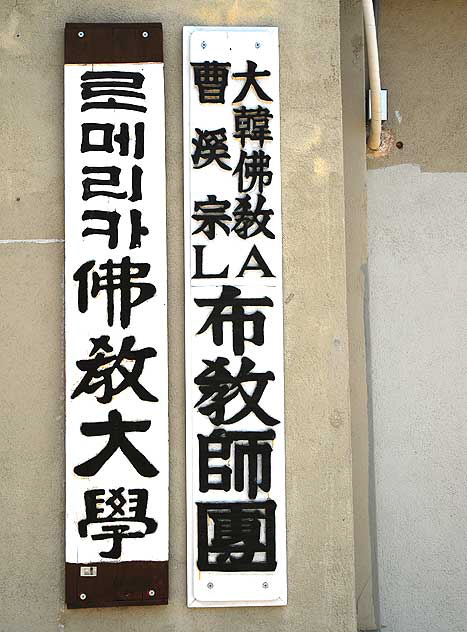 로메리카佛敎大學
大韓佛敎
曹溪宗
LA
布敎師團